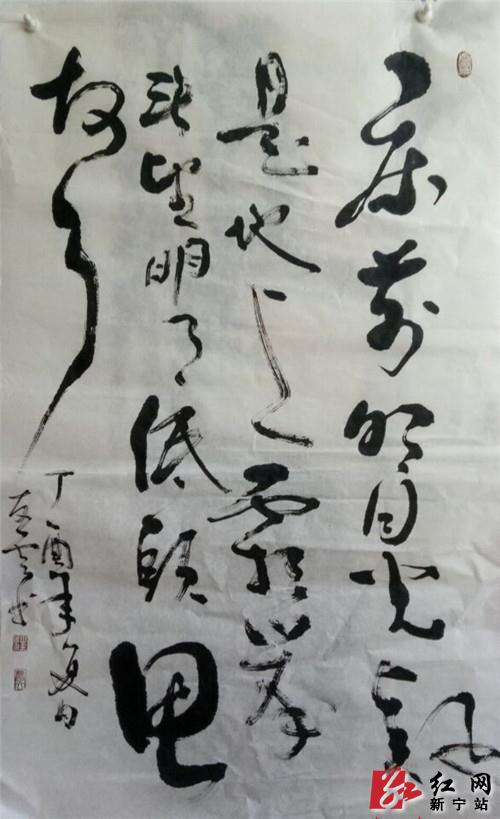 床前明月光疑
是地上霜举
頭望明月低頭思
故乡
丁酉年夏月
红网
新宁站